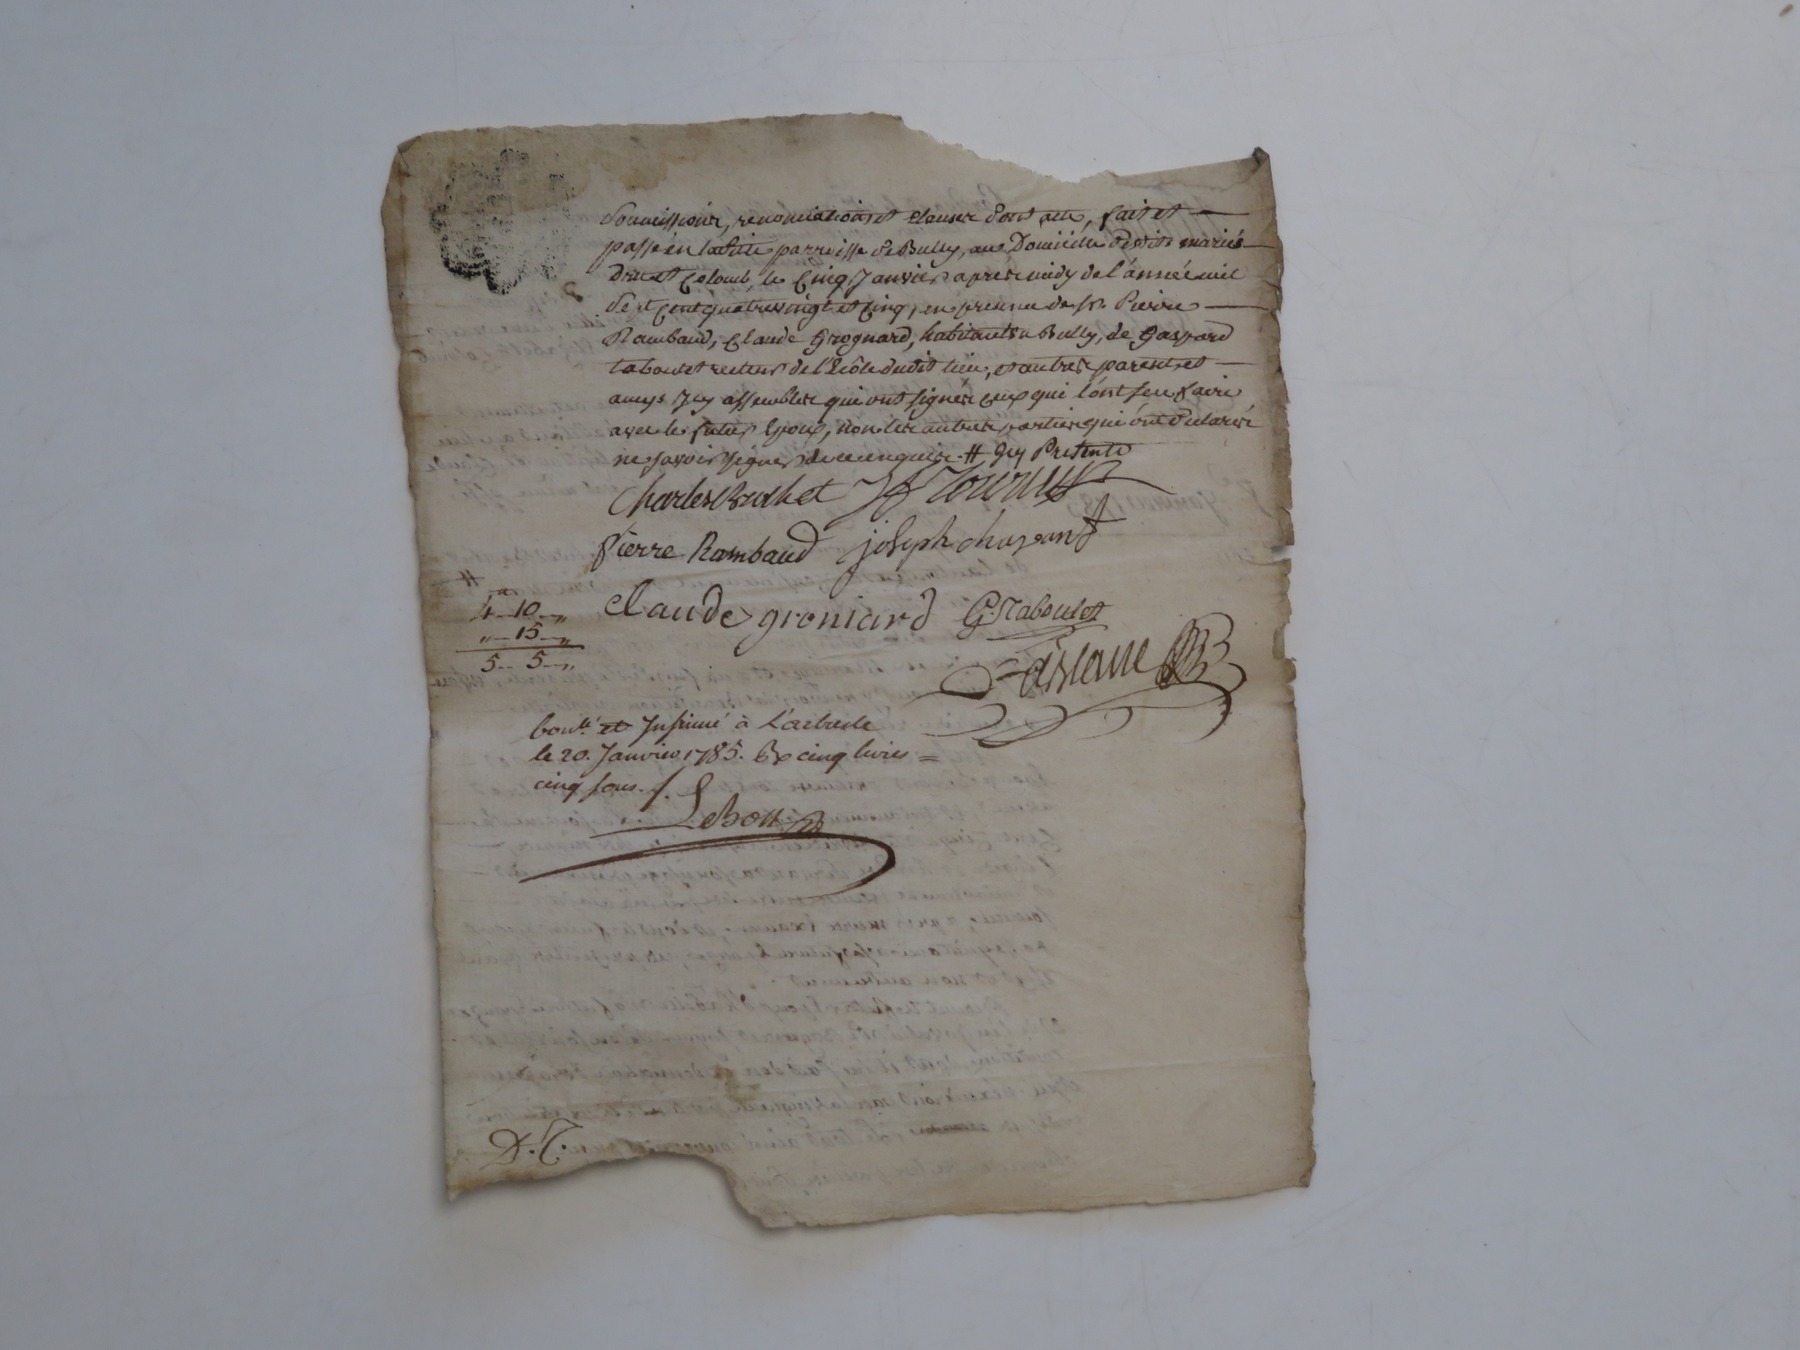 soumissions, renonciations et clauses dont acte, fait et
passé en ladite parroisse de Bully, au Domicille desdits mariés
Druet Colomb, le Cinq Janvier apres midy de l'année mil
sept cent quatrevingt et Cinq, en presence de sr. Pierre
Rambaud, Claude Grognard, habitants a Bully, de Gaspard
taboulet recteur de l'Ecôle dudit lieu, et autres parents et
amys icy assemblés qui ont signés ceux qui l'ont seu faire
avec le futur Epoux, non les autres parties qui ont declarés
ne savoir signer de ce enquis. # icy Presents
Charles Bruchet
Pierre Rambaud joseph chapant
#
4 - 10 - „
claude groniard G. Taboulet
„ - 15 - „
5 - 5 - „
bon. lé et Insinué à L'arbresle
le 20. Janvier 1785. Rx cinq livres =
cinq sous. /.
LeBon
D. T.